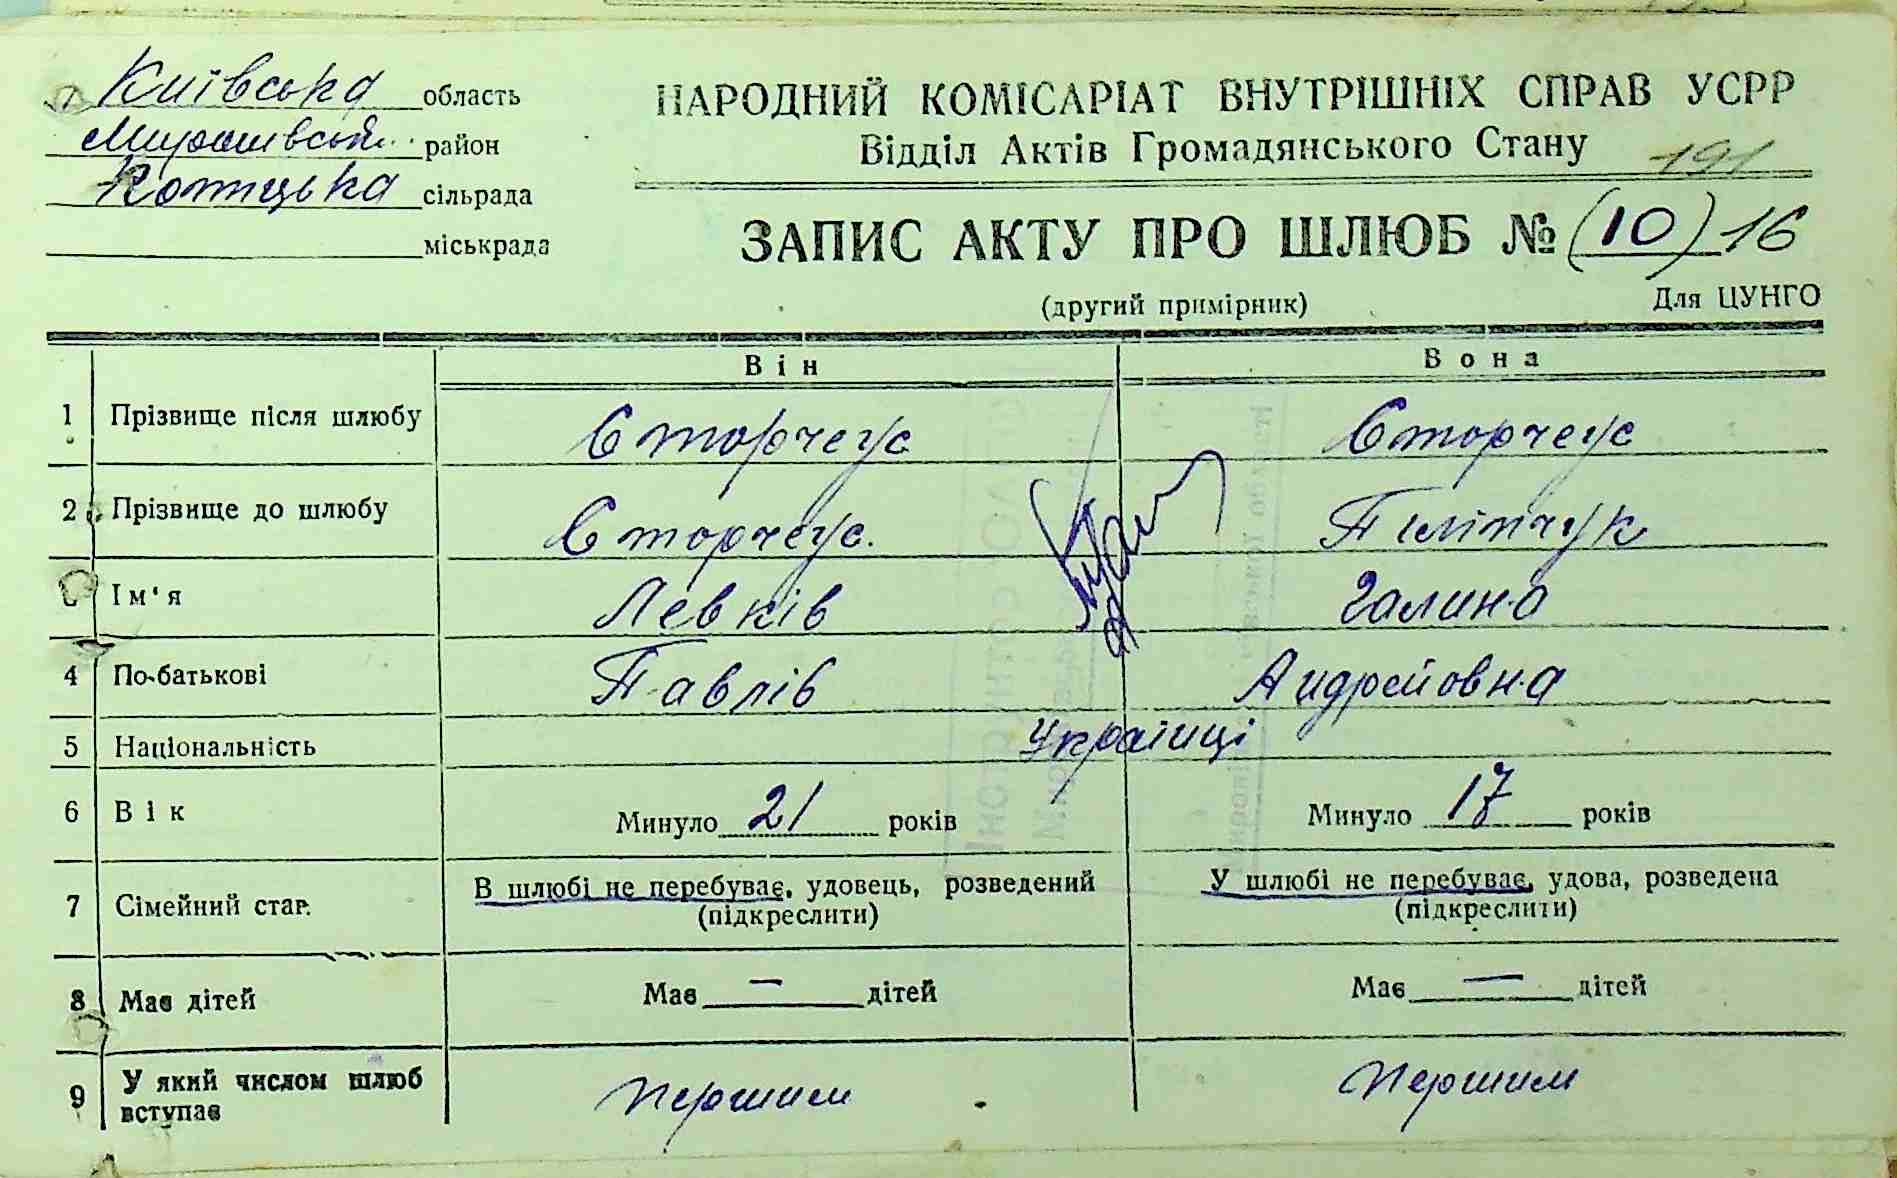 Київська область
район
сільрада
міськрада
НАРОДНИЙ КОМІСАРІАТ ВНУТРІШНІХ СПРАВ УСРР
Відділ Актів Громадянського Стану
191
ЗАПИС АКТУ ПРО ШЛЮБ № (10) 16
(другий примірник)
Для ЦУНГО
Він
Вона
1 Прізвище після шлюбу Сторчеус Сторчеус
2 Прізвище до шлюбу Сторчеус. Піліпчук
Ім'я Левків Галина
4 По-батькові Павлів Андрейовна
5 Національність Українці
6 Вік Минуло 21 років Минуло 17 років
7 Сімейний стан В шлюбі не перебуває, удовець, розведений У шлюбі не перебуває, удова, розведена
(підкреслити) (підкреслити)
8 Має дітей Має — дітей Має — дітей
9 У який числом шлюб першим першим
вступає